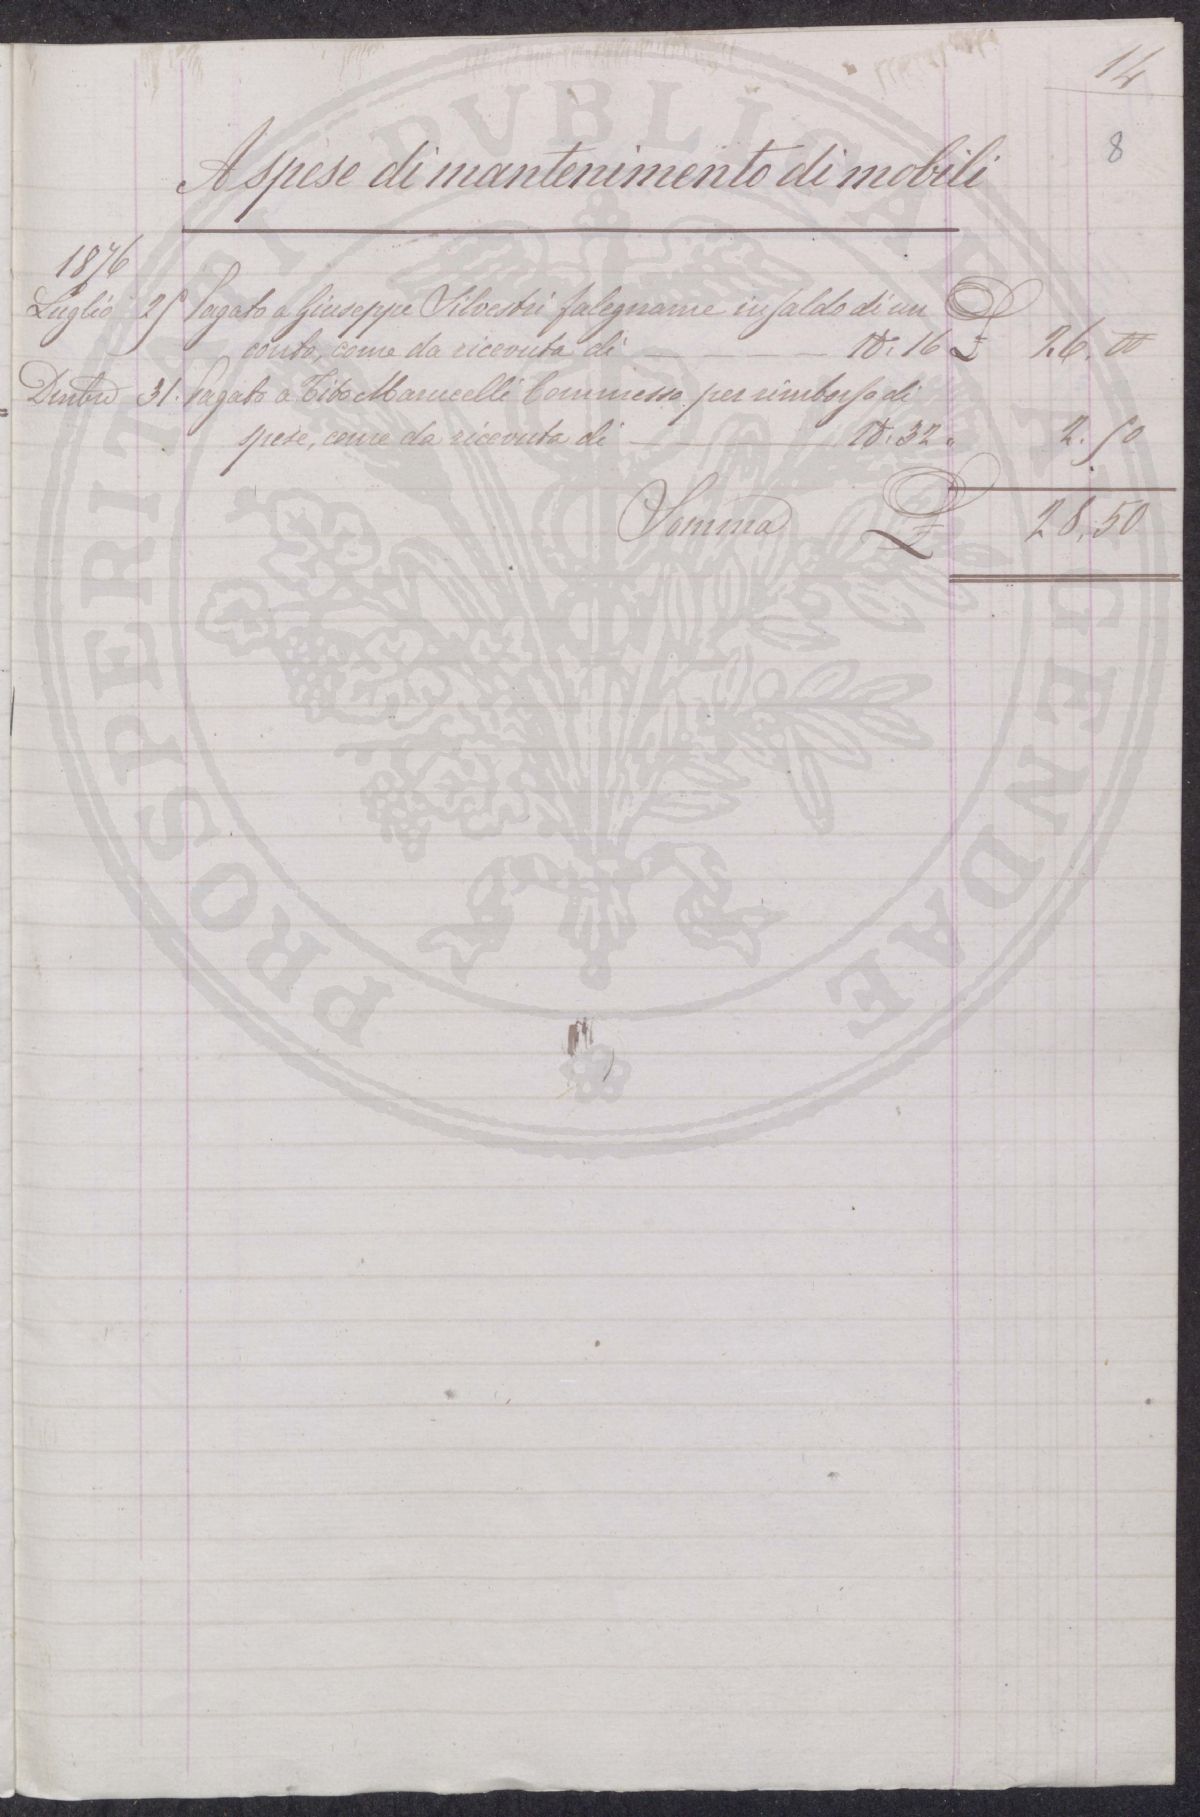 14
8
A spese di mantenimento di mobili
1876
Luglio 25 Pagato a Giuseppe Silvestri falegname in saldo di un
conto, come da ricevuta di N: 16 £ 26. 00
31. Pagato a Tito Marucelli Commesso per rimborso di
spese, come da ricevuta di N: 32 " 2. 50
Somma £ 28, 50
PROSPERITATI PVBLICAE AVGENDAE